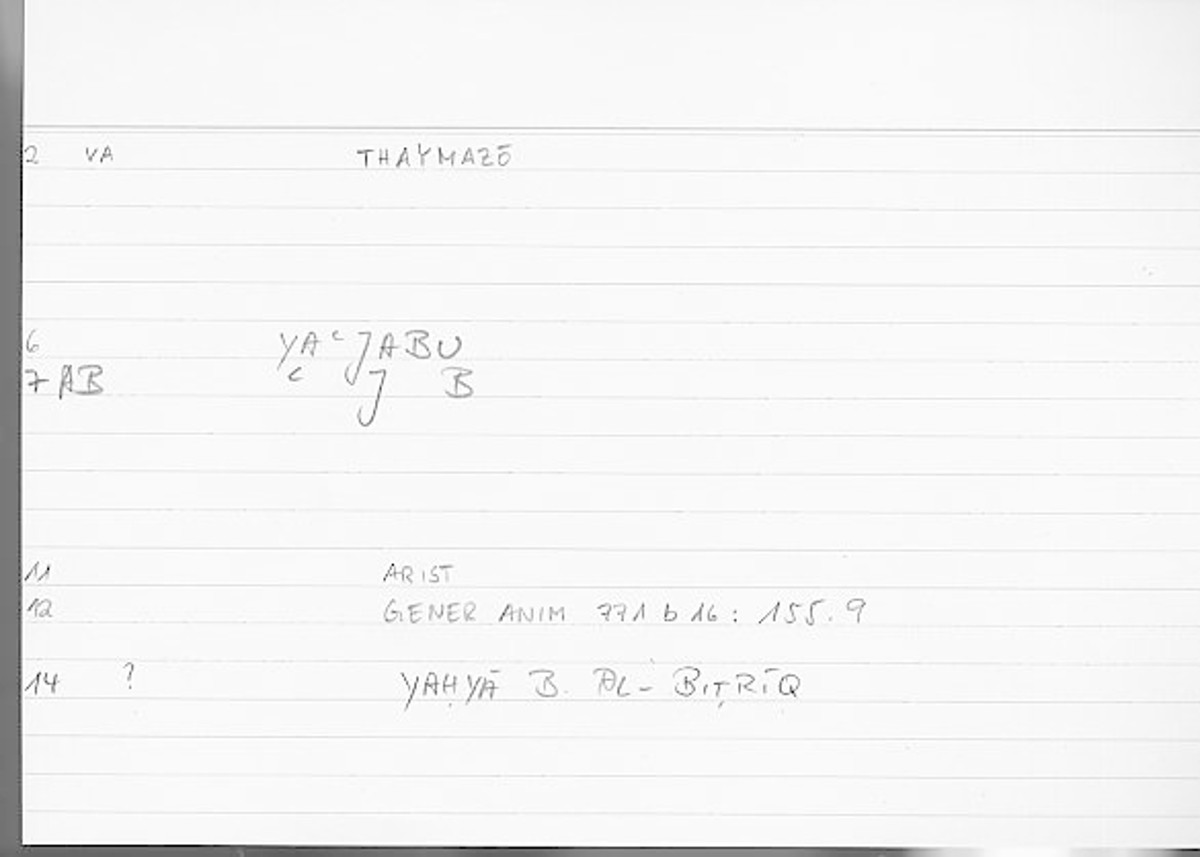 2 VA THAYMAZŌ
6 YAʿJABU
7 AB ʿJB
11 ARIST
12 GENER ANIM 771 b 16: 155.9
14 ? YAḤYĀ B. AL-BIṬRĪQ